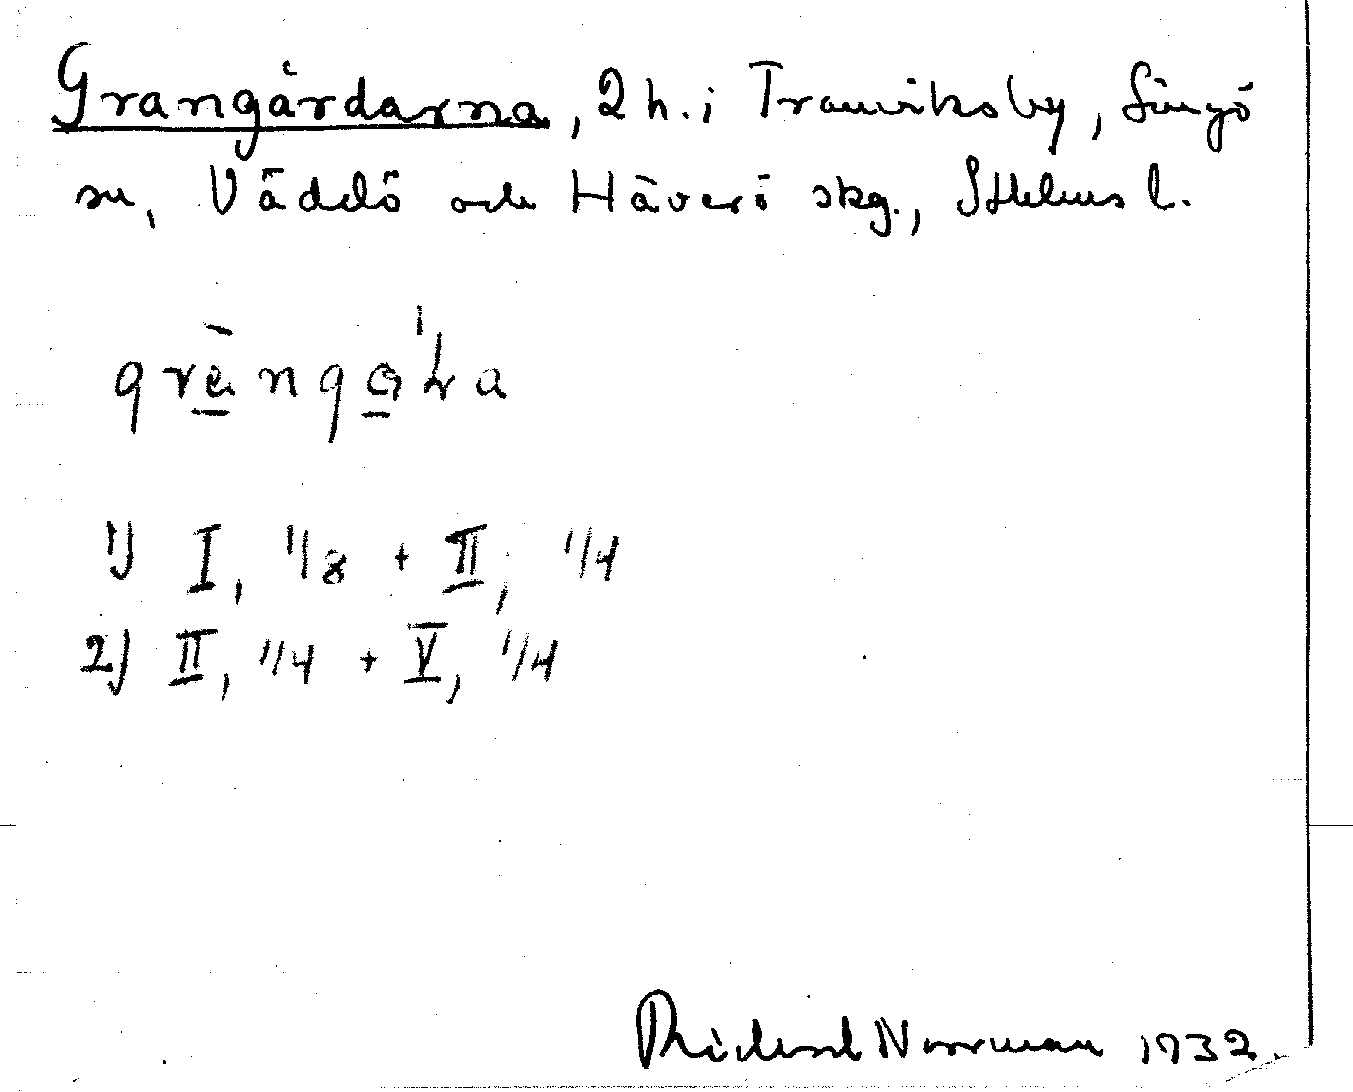 Grangårdarna, 2 h. i Tranviksby, Singö
sn, Väddö och Häverö skg., Sthlms l.
1) I, 1/8 + II, 1/4
2) II, 1/4 + V, 1/4
Rickard Norrman 1932.